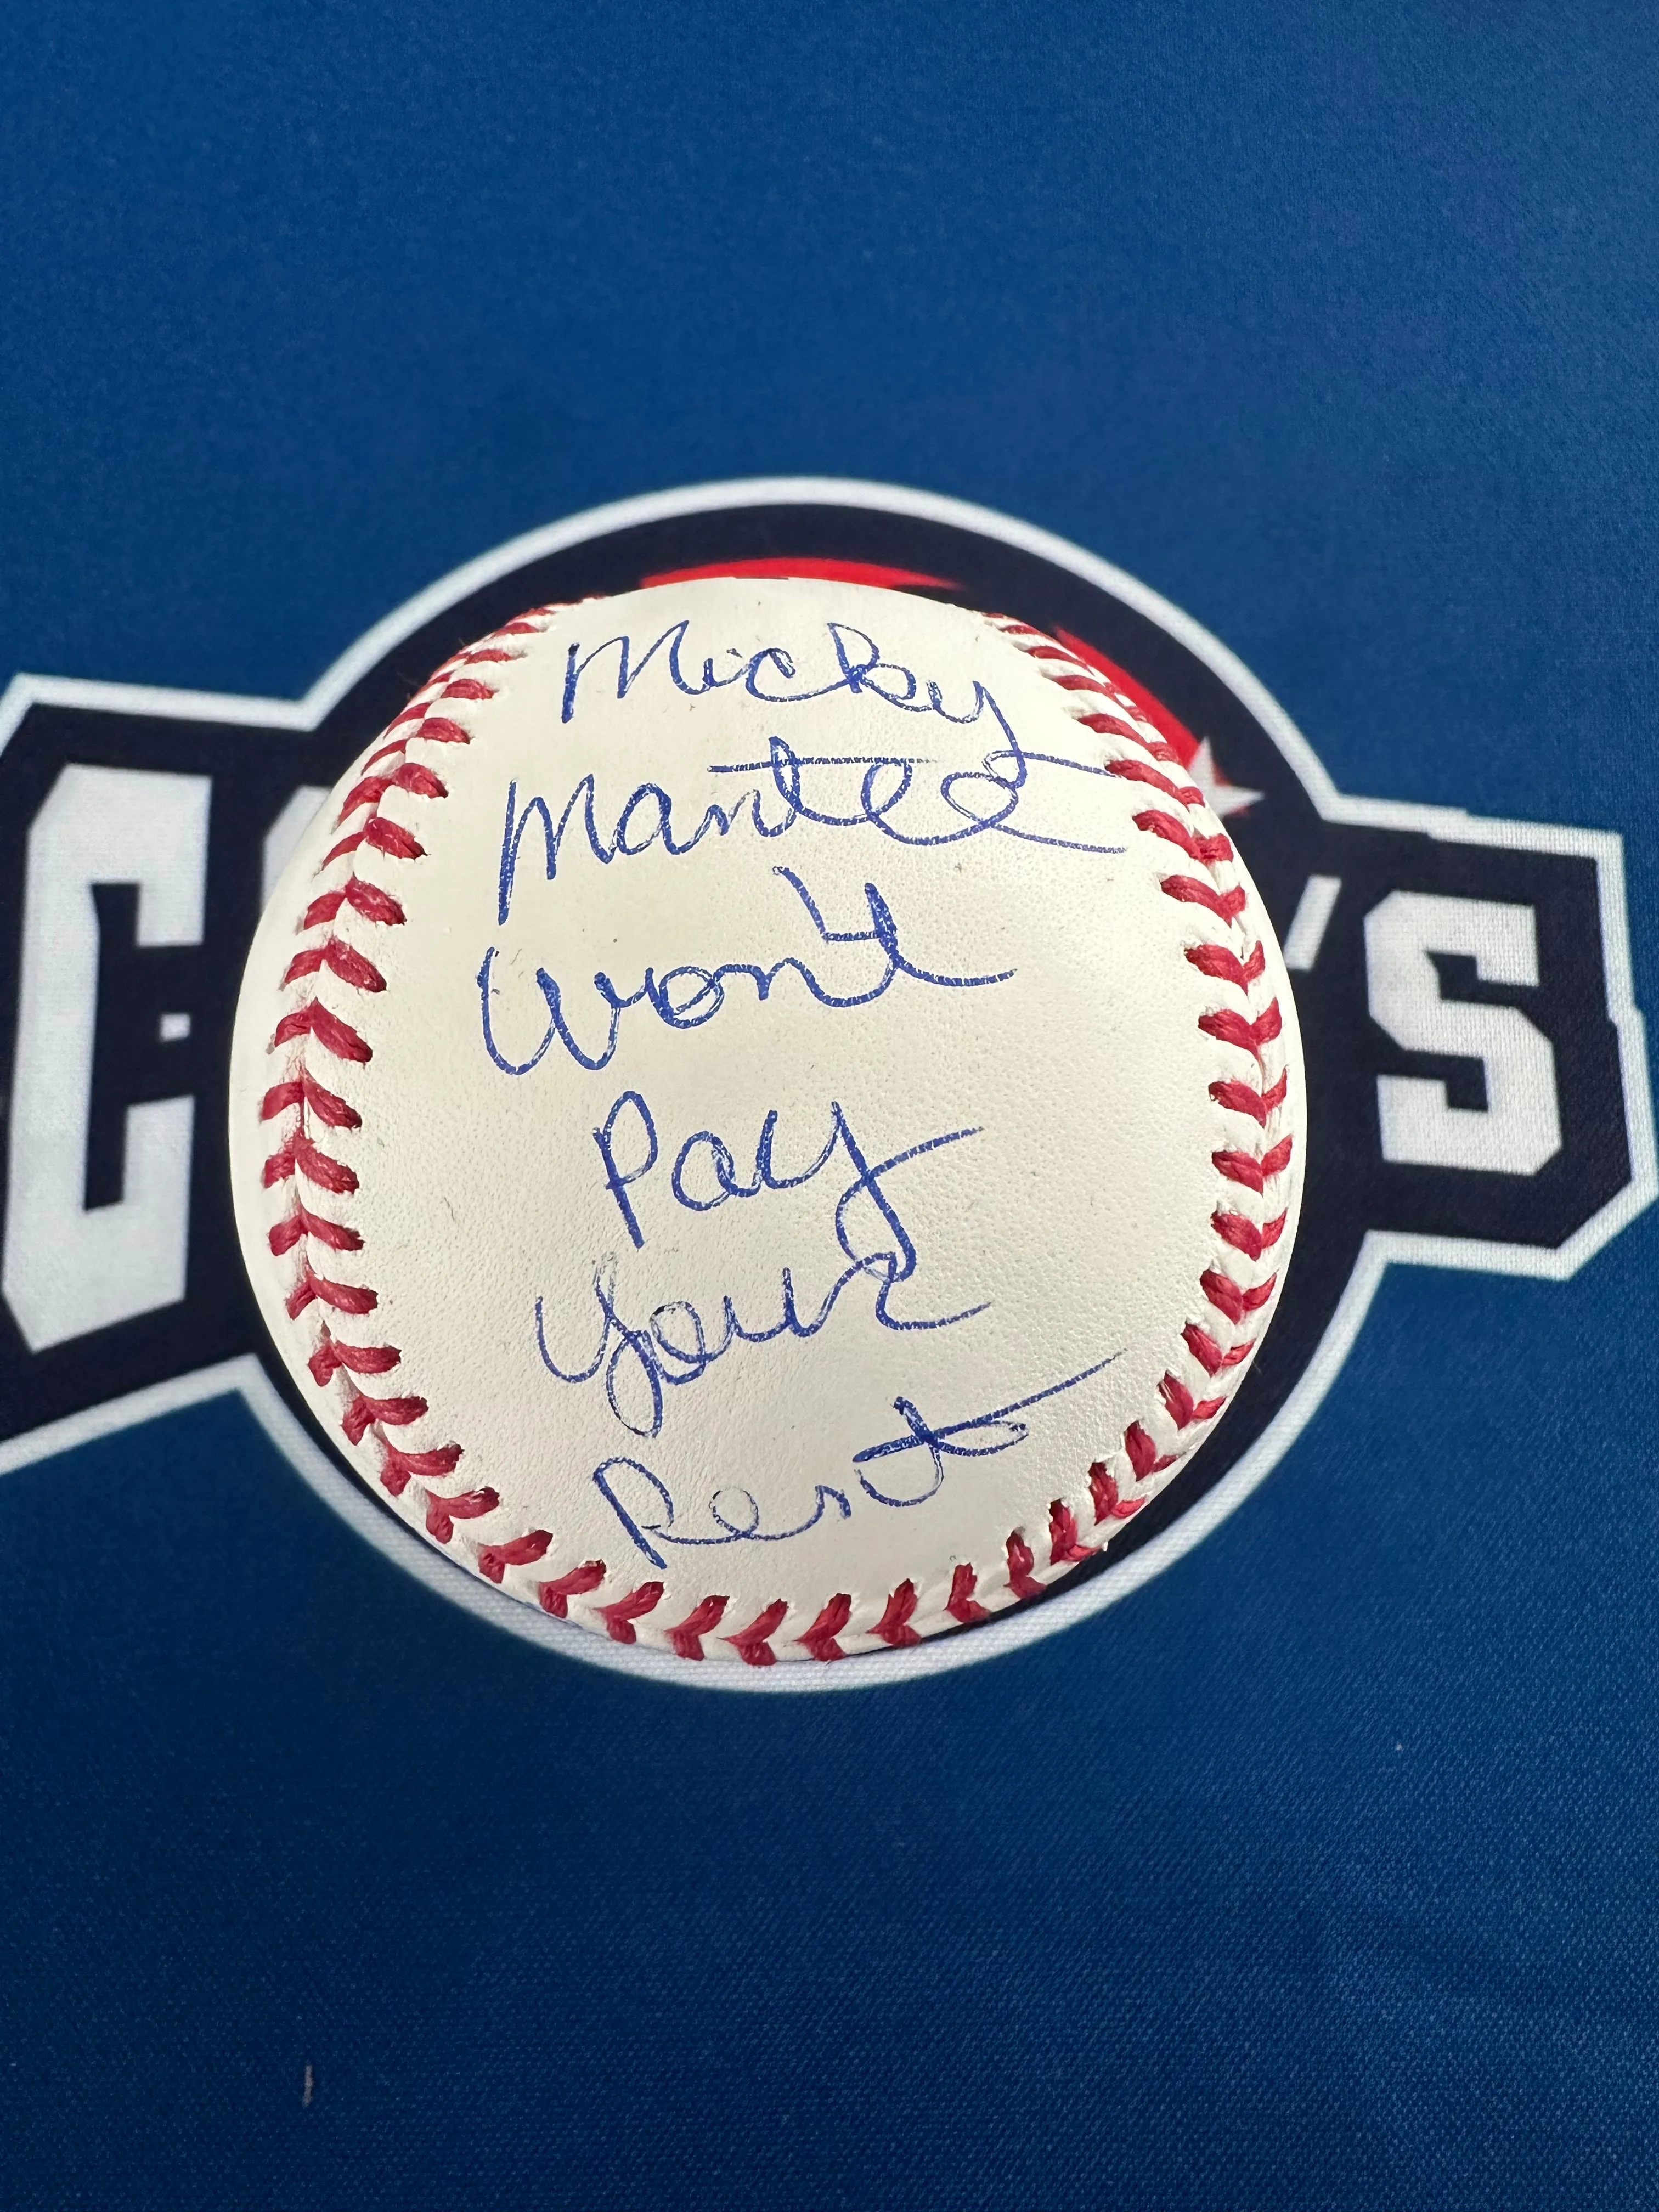 Micky
Mantee
Won't
Pay
Your
Rent
C 'S